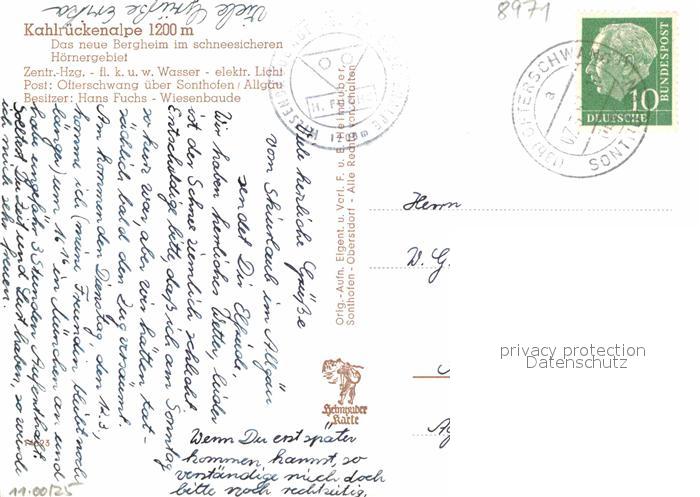 Viele Grüße Erika
8971
Kahlrückenalpe 1200 m
Das neue Bergheim im schneesicheren
Hörnergebiet
Zentr.-Hzg. - fl. k. u. w. Wasser - elektr. Licht
Post: Ofterschwang über Sonthofen / Allgäu
Besitzer: Hans Fuchs - Wiesenbaude
1200m
OFTERSCHWANG
SONTH
a
10
DEUTSCHE
BUNDESPOST
Viele herzliche Grüße
vom Skiurlaub im Allgäu
sendet Dir Elfriede.
Wir haben herrliches Wetter, leider
ist der Schnee ziemlich schlecht.
Entschuldige bitte, daß ich am Sonntag
so kurz war, aber wir hätten tat-
sächlich bald den Zug versäumt.
Am kommenden Dienstag, den 12.3.,
komme ich (meine Freundin bleibt noch
länger) um 16.16 in München an und
habe ungefähr 3 Stunden Aufenthalt.
Solltest Du Zeit und Lust haben, so würde
ich mich sehr freuen.
Wenn Du erst später
kommen kannst, so
verständige mich doch
bitte noch rechtzeitig.
Orig.-Aufn. Eigent. u. Verl. F. u. E. Heimhuber
Sonthofen - Oberstdorf - Alle Rechte vorbehalten
Heimhuber
Karte
Herrn
W. G.
privacy protection
Datenschutz
11.00/25